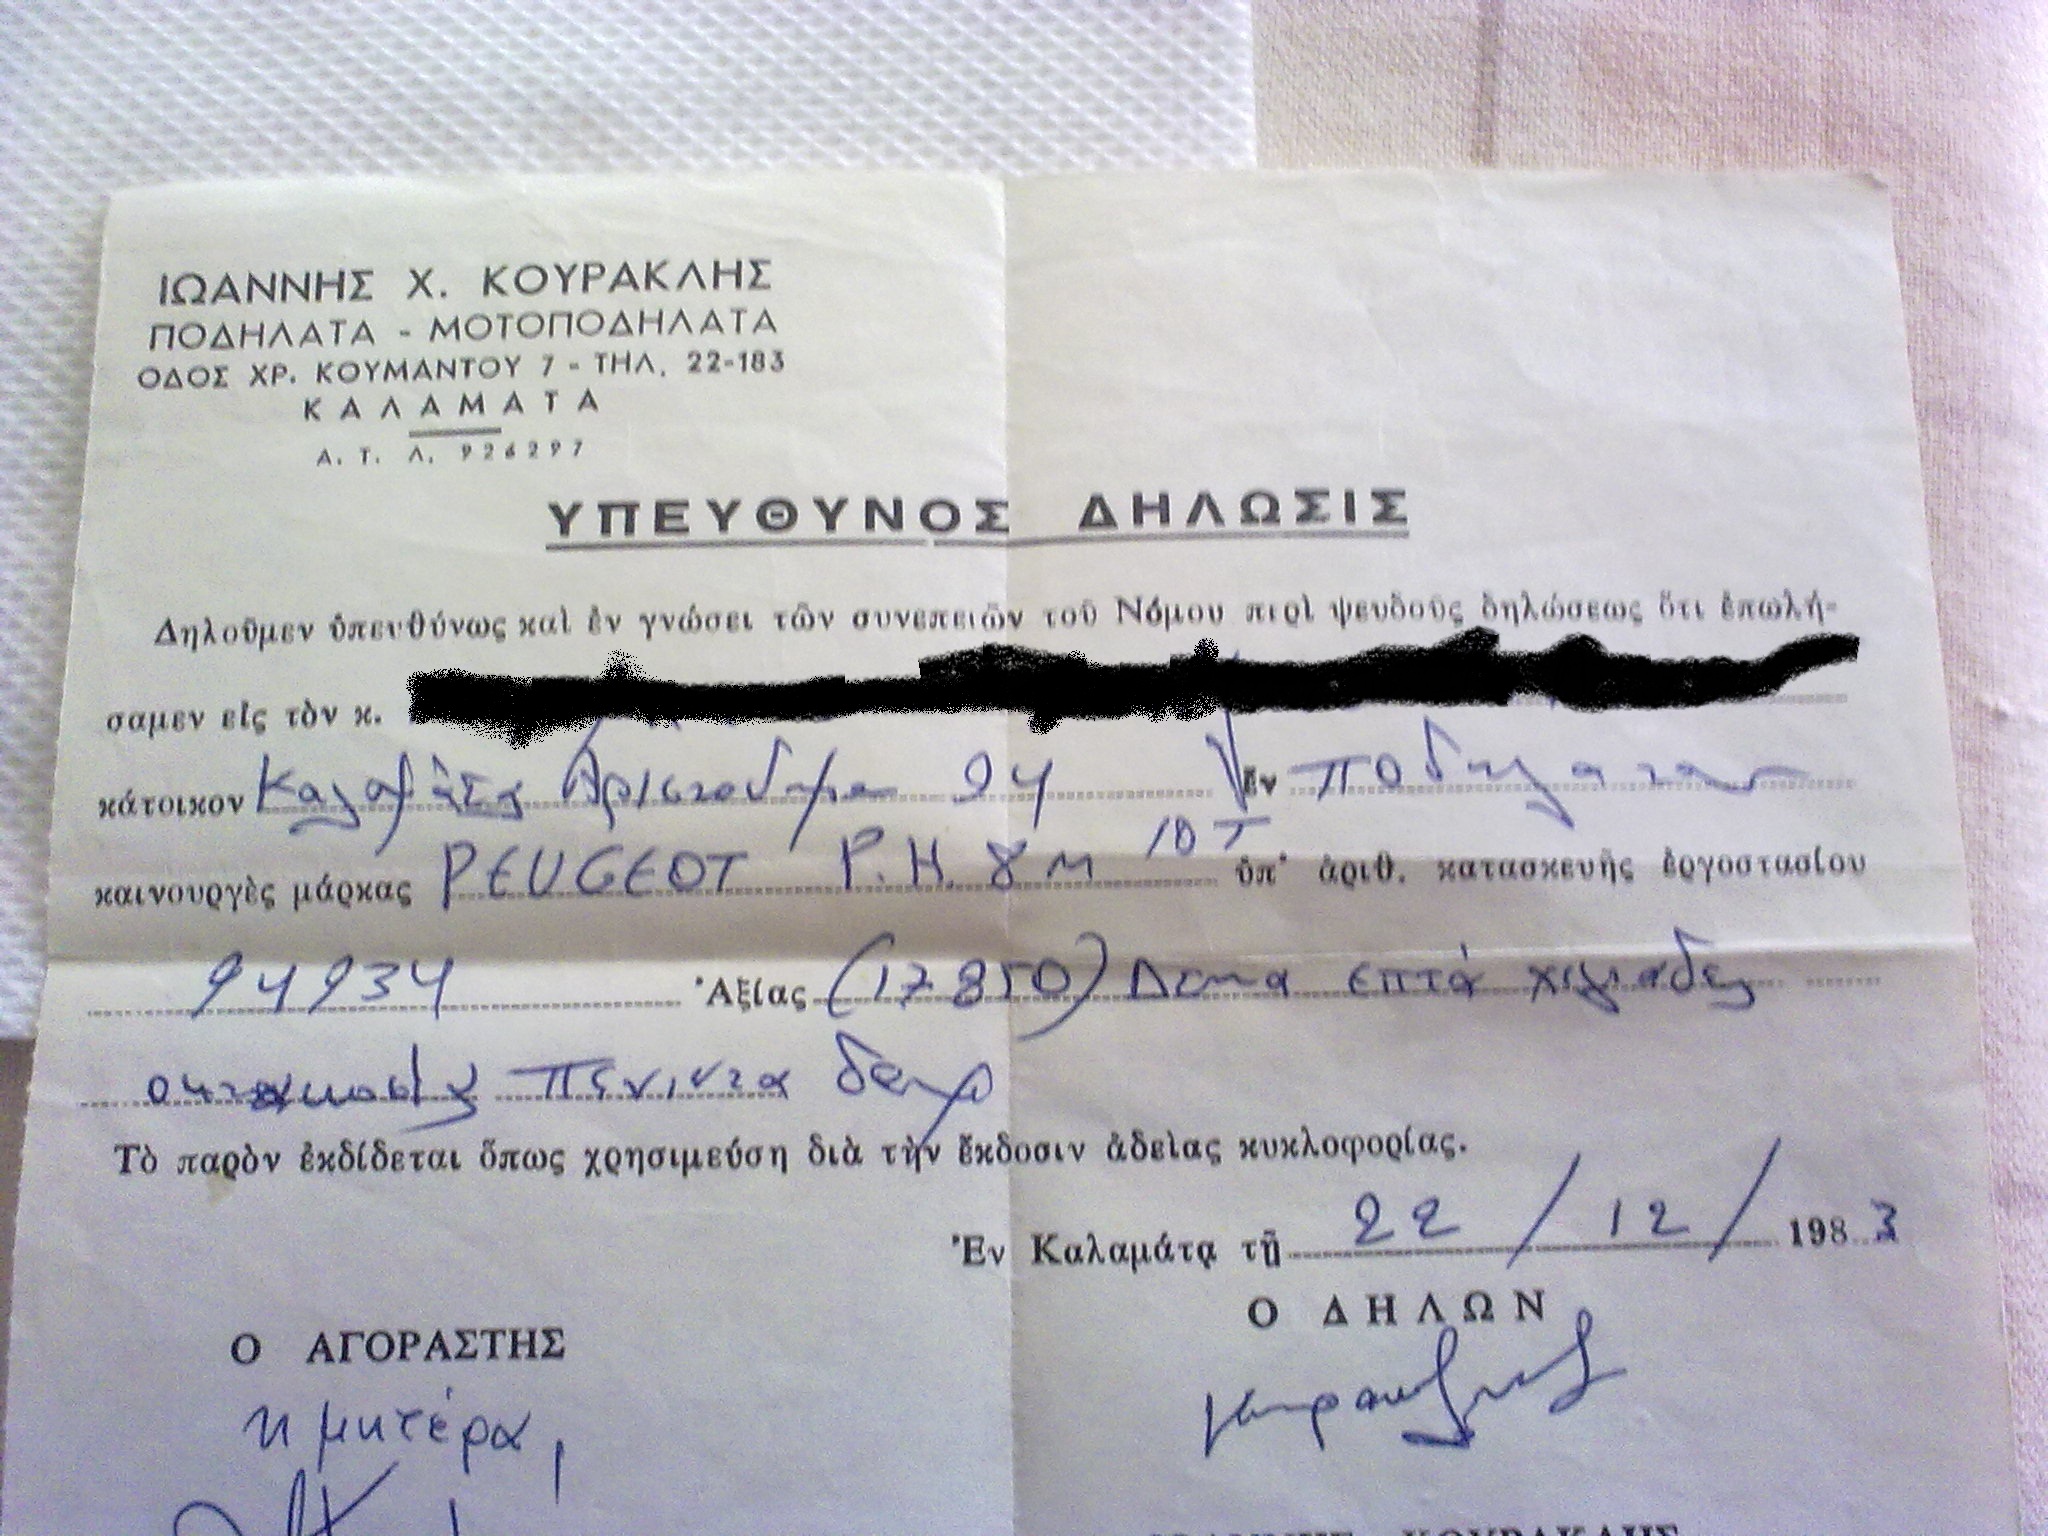 ΙΩΑΝΝΗΣ Χ. ΚΟΥΡΑΚΛΗΣ
ΠΟΔΗΛΑΤΑ - ΜΟΤΟΠΟΔΗΛΑΤΑ
ΟΔΟΣ ΧΡ. ΚΟΥΜΑΝΤΟΥ 7 - ΤΗΛ. 22-183
ΚΑΛΑΜΑΤΑ
Α. Τ. Λ. 926297
ΥΠΕΥΘΥΝΟΣ ΔΗΛΩΣΙΣ
Δηλοῦμεν ὑπευθύνως καὶ ἐν γνώσει τῶν συνεπειῶν τοῦ Νόμου περὶ ψευδοῦς δηλώσεως ὅτι ἐπωλή-
σαμεν εἰς τὸν κ.
κάτοικον Καλαμάτας Αριστοδήμου 94 Ἐν ποδηλατον
καινουργὲς μάρκας PEUGEOT P.H. 8 M 10 T ὑπ' ἀριθ. κατασκευῆς ἐργοστασίου
94934 Ἀξίας (17850) Δεκα επτά χιλιαδες
οκτακοσίες πενιντα δρχ
Τὸ παρὸν ἐκδίδεται ὅπως χρησιμεύση διὰ τὴν ἔκδοσιν ἀδείας κυκλοφορίας.
Ἐν Καλαμάτᾳ τῇ 22 / 12 / 1983
Ο ΔΗΛΩΝ
Ο ΑΓΟΡΑΣΤΗΣ
η μητέρα,
ΙΩΑΝΝΗΣ ΚΟΥΡΑΚΛΗΣ